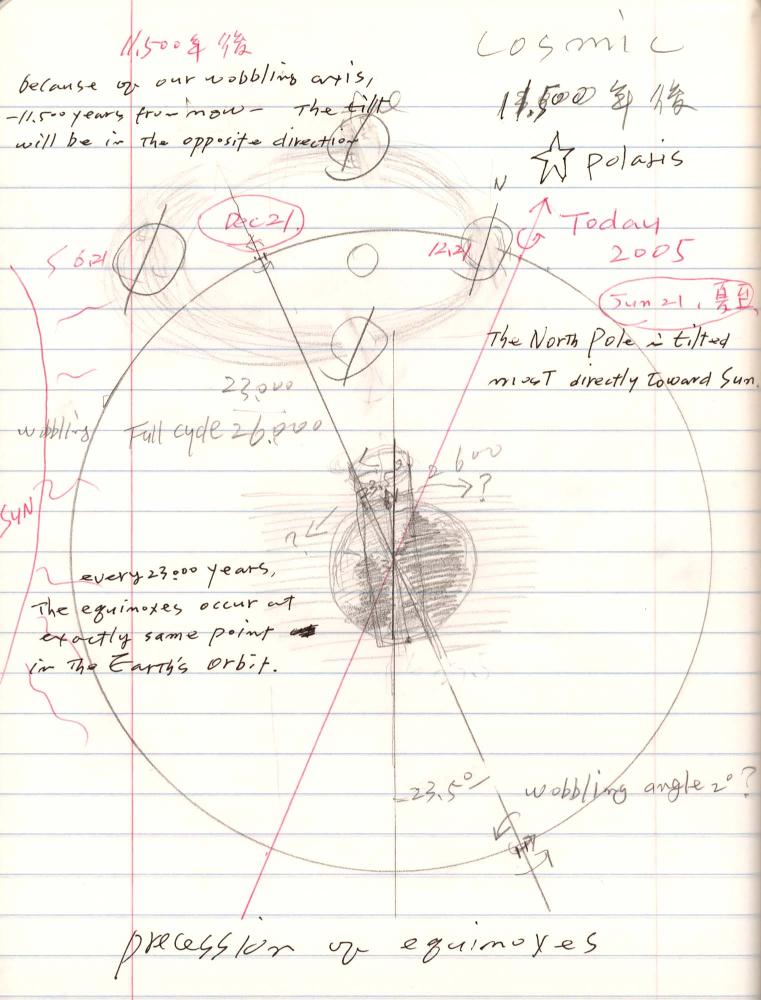 11,500年後
because of our wobbling axis,
-11.500 years from now- The tilt
will be in the opposite direction
Cosmic
11,500年後
polaris
N
Today
2005
Dec 21.
6.21
12.21
Jun 21, 夏至
The North Pole is tilted
most directly toward Sun.
23,000
Full cycle 26,000
wobbling
2600
?
?
SUN
every 23000 years,
The equinoxes occur at
exactly same point
in The Earth's Orbit.
23.5°
wobbling angle 2°?
precession of equinoxes